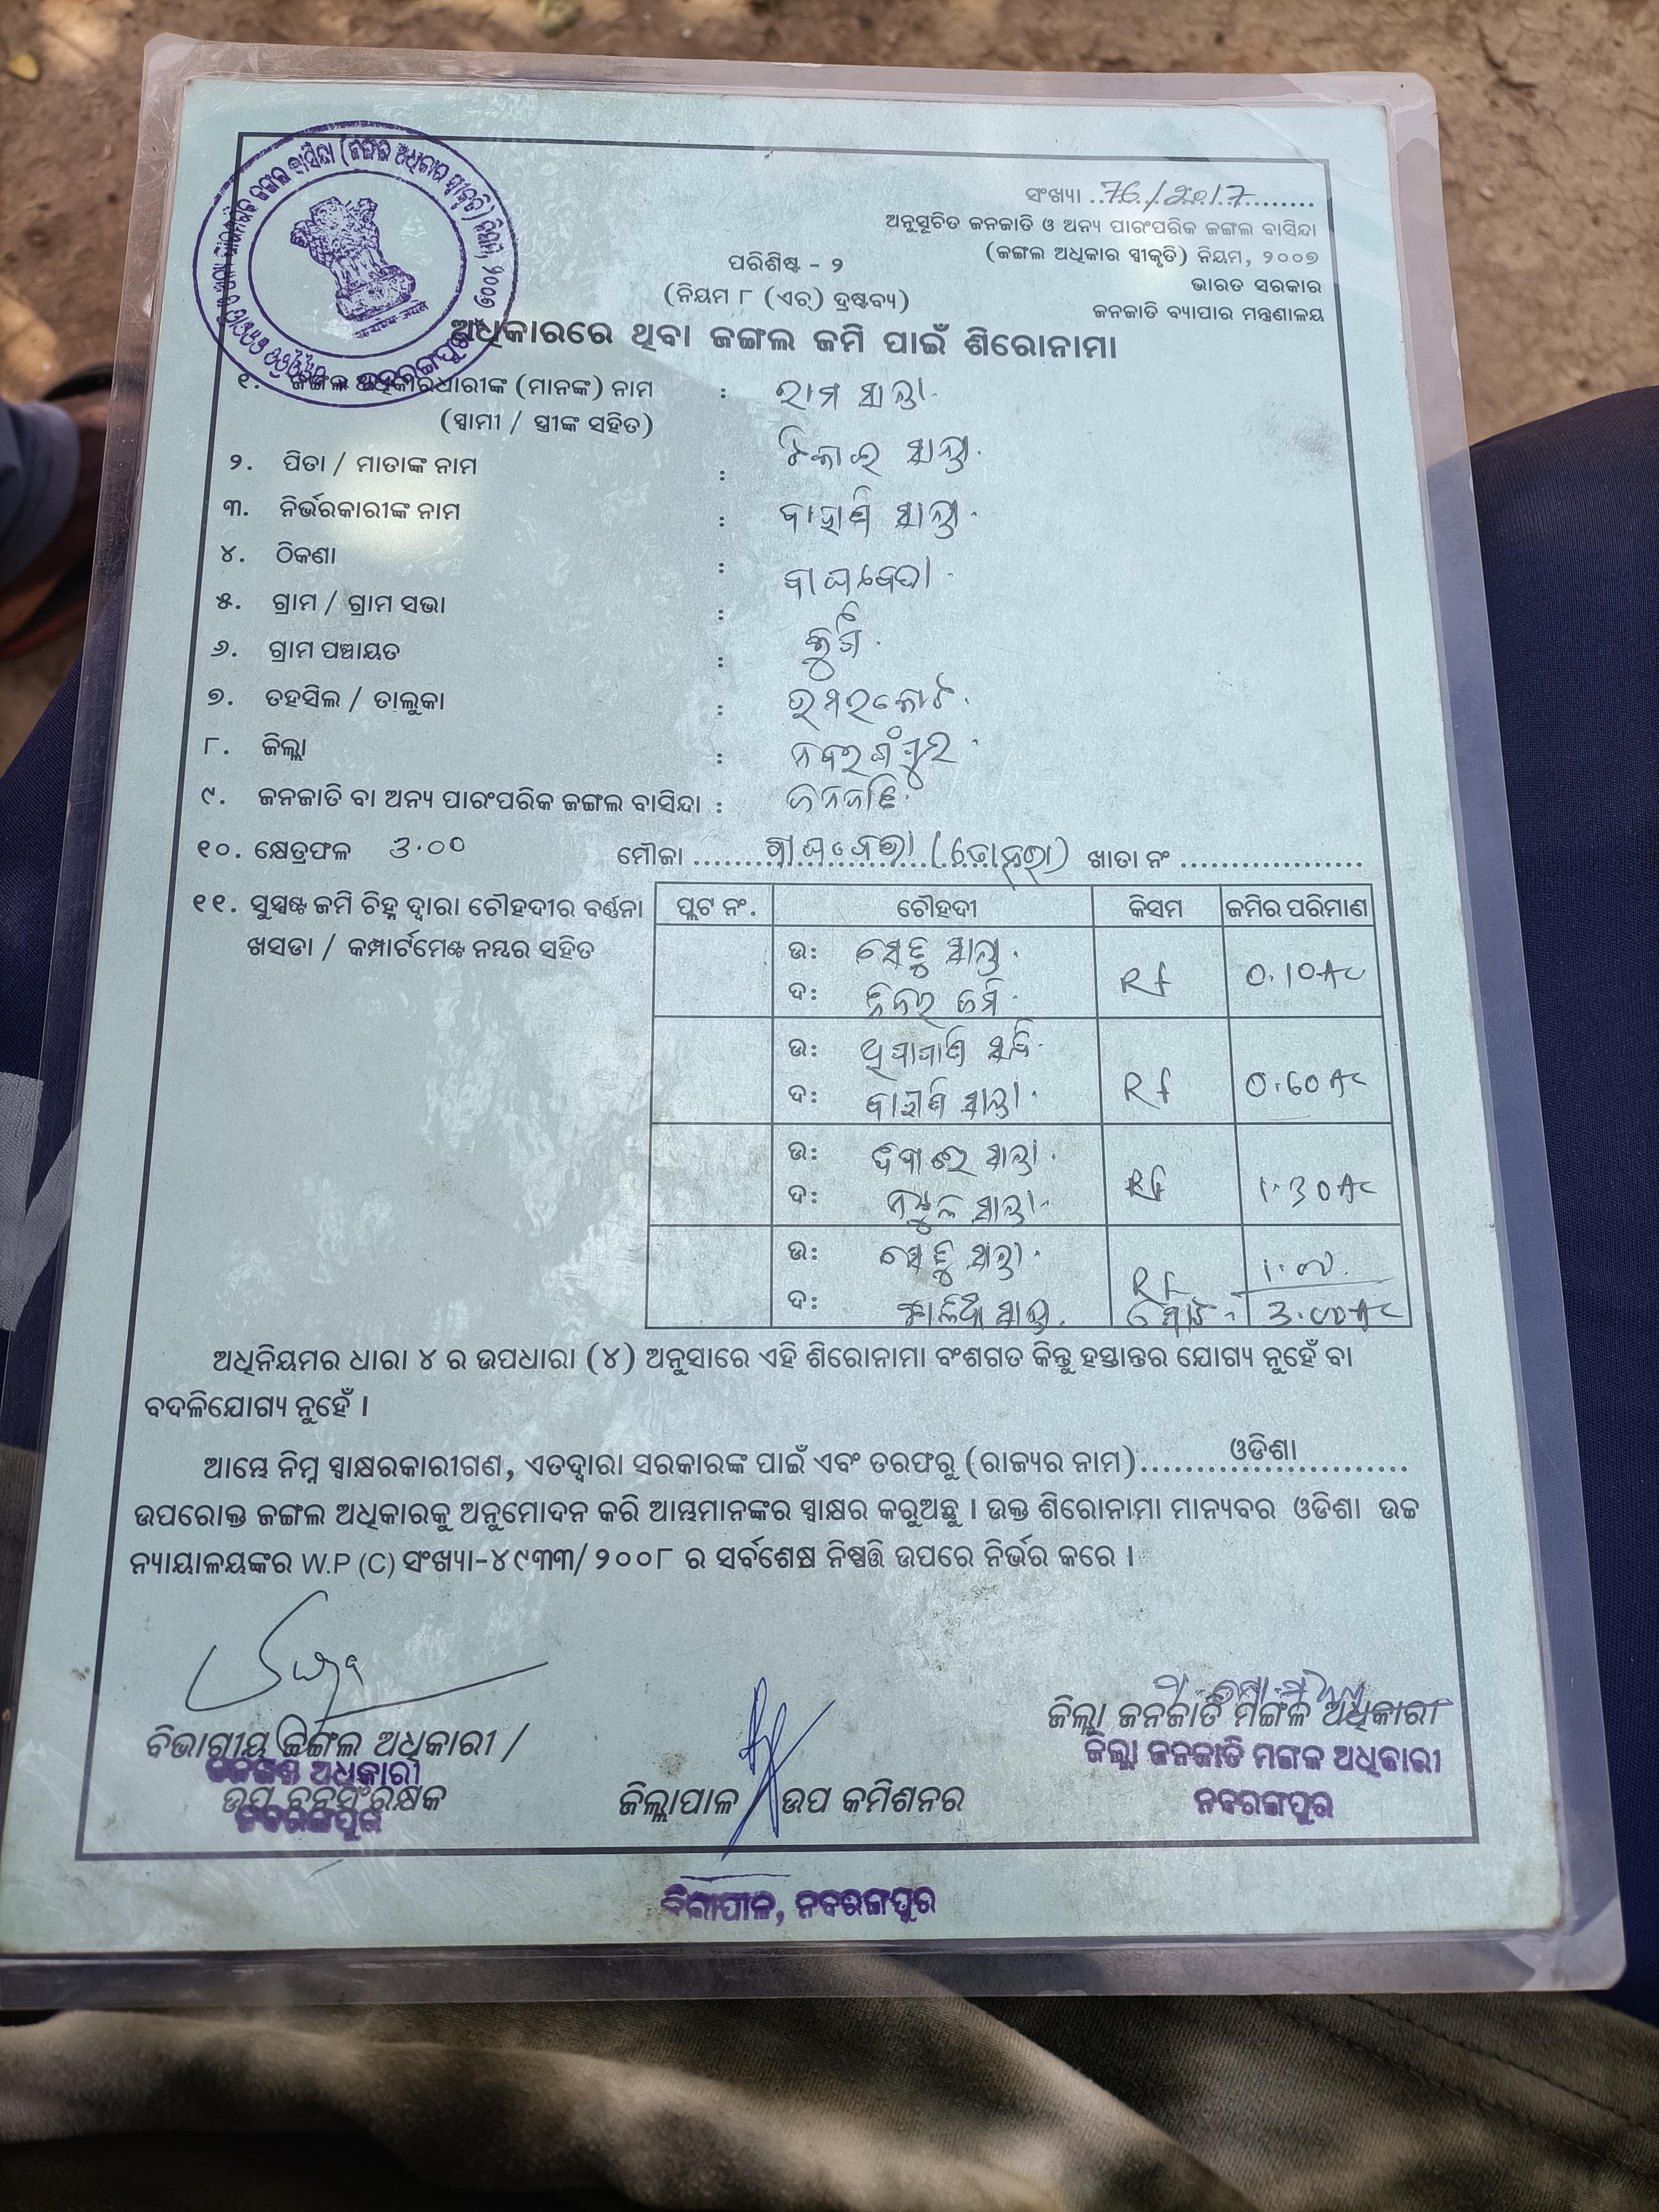 ସଂଖ୍ୟା ..76/2017..........
ଅନୁସୂଚିତ ଜନଜାତି ଓ ଅନ୍ୟ ପାରଂପରିକ ଜଙ୍ଗଲ ବାସିନ୍ଦା
(ଜଙ୍ଗଲ ଅଧିକାର ସ୍ୱୀକୃତି) ନିୟମ, ୨୦୦୭
ଭାରତ ସରକାର
ଜନଜାତି ବ୍ୟାପାର ମନ୍ତ୍ରଣାଳୟ
ପରିଶିଷ୍ଟ - ୨
(ନିୟମ ୮ (ଏଚ୍) ଦ୍ରଷ୍ଟବ୍ୟ)
ଅଧିକାରରେ ଥିବା ଜଙ୍ଗଲ ଜମି ପାଇଁ ଶିରୋନାମା
୧. ଜଙ୍ଗଲ ଅଧିକାରଧାରୀଙ୍କ (ମାନଙ୍କ) ନାମ : ରାମ ସାନ୍ତା
(ସ୍ୱାମୀ / ସ୍ତ୍ରୀଙ୍କ ସହିତ)
୨. ପିତା / ମାତାଙ୍କ ନାମ : ସାନ୍ତା
୩. ନିର୍ଭରକାରୀଙ୍କ ନାମ : ସାନ୍ତା
୪. ଠିକଣା :
୫. ଗ୍ରାମ / ଗ୍ରାମ ସଭା :
୬. ଗ୍ରାମ ପଞ୍ଚାୟତ :
୭. ତହସିଲ / ତାଲୁକା : ଉମରକୋଟ
୮. ଜିଲ୍ଲା : ନବରଂଗପୁର
୯. ଜନଜାତି ବା ଅନ୍ୟ ପାରଂପରିକ ଜଙ୍ଗଲ ବାସିନ୍ଦା : ଜନଜାତି
୧୦. କ୍ଷେତ୍ରଫଳ ୩.୦୦ ମୌଜା ଖାତା ନଂ ..................
୧୧. ସୁସ୍ପଷ୍ଟ ଜମି ଚିହ୍ନ ଦ୍ୱାରା ଚୌହଦୀର ବର୍ଣ୍ଣନା ପ୍ଲଟ ନଂ. ଚୌହଦୀ କିସମ ଜମିର ପରିମାଣ
ଖସଡା / କମ୍ପାର୍ଟମେଣ୍ଟ ନମ୍ବର ସହିତ
ଉ: ସାନ୍ତା
ଦ: Rf 0.10Ac
ଉ:
ଦ: ସାନ୍ତା Rf 0.60Ac
ଉ: ସାନ୍ତା
ଦ: ସାନ୍ତା Rf 1.30Ac
ଉ: ସାନ୍ତା Rf 1.00
ଦ: ମୋଟ - 3.00Ac
ଅଧିନିୟମର ଧାରା ୪ ର ଉପଧାରା (୪) ଅନୁସାରେ ଏହି ଶିରୋନାମା ବଂଶଗତ କିନ୍ତୁ ହସ୍ତାନ୍ତର ଯୋଗ୍ୟ ନୁହେଁ ବା
ବଦଳିଯୋଗ୍ୟ ନୁହେଁ ।
ଆମ୍ଭେ ନିମ୍ନ ସ୍ୱାକ୍ଷରକାରୀଗଣ, ଏତଦ୍ୱାରା ସରକାରଙ୍କ ପାଇଁ ଏବଂ ତରଫରୁ (ରାଜ୍ୟର ନାମ)........ଓଡିଶା..........
ଉପରୋକ୍ତ ଜଙ୍ଗଲ ଅଧିକାରକୁ ଅନୁମୋଦନ କରି ଆମ୍ଭମାନଙ୍କର ସ୍ୱାକ୍ଷର କରୁଅଛୁ । ଉକ୍ତ ଶିରୋନାମା ମାନ୍ୟବର ଓଡିଶା ଉଚ୍ଚ
ନ୍ୟାୟାଳୟଙ୍କର W.P (C) ସଂଖ୍ୟା-୪୯୩୩/୨୦୦୮ ର ସର୍ବଶେଷ ନିଷ୍ପତ୍ତି ଉପରେ ନିର୍ଭର କରେ ।
ବିଭାଗୀୟ ଜଙ୍ଗଲ ଅଧିକାରୀ /
ଉପ ବନସଂରକ୍ଷକ
ନବରଙ୍ଗପୁର
ଜିଲ୍ଲାପାଳ / ଉପ କମିଶନର
ଜିଲ୍ଲା ଜନଜାତି ମଙ୍ଗଳ ଅଧିକାରୀ
ଜିଲ୍ଲା ଜନଜାତି ମଙ୍ଗଳ ଅଧିକାରୀ
ନବରଙ୍ଗପୁର
ଜିଲ୍ଲାପାଳ, ନବରଙ୍ଗପୁର